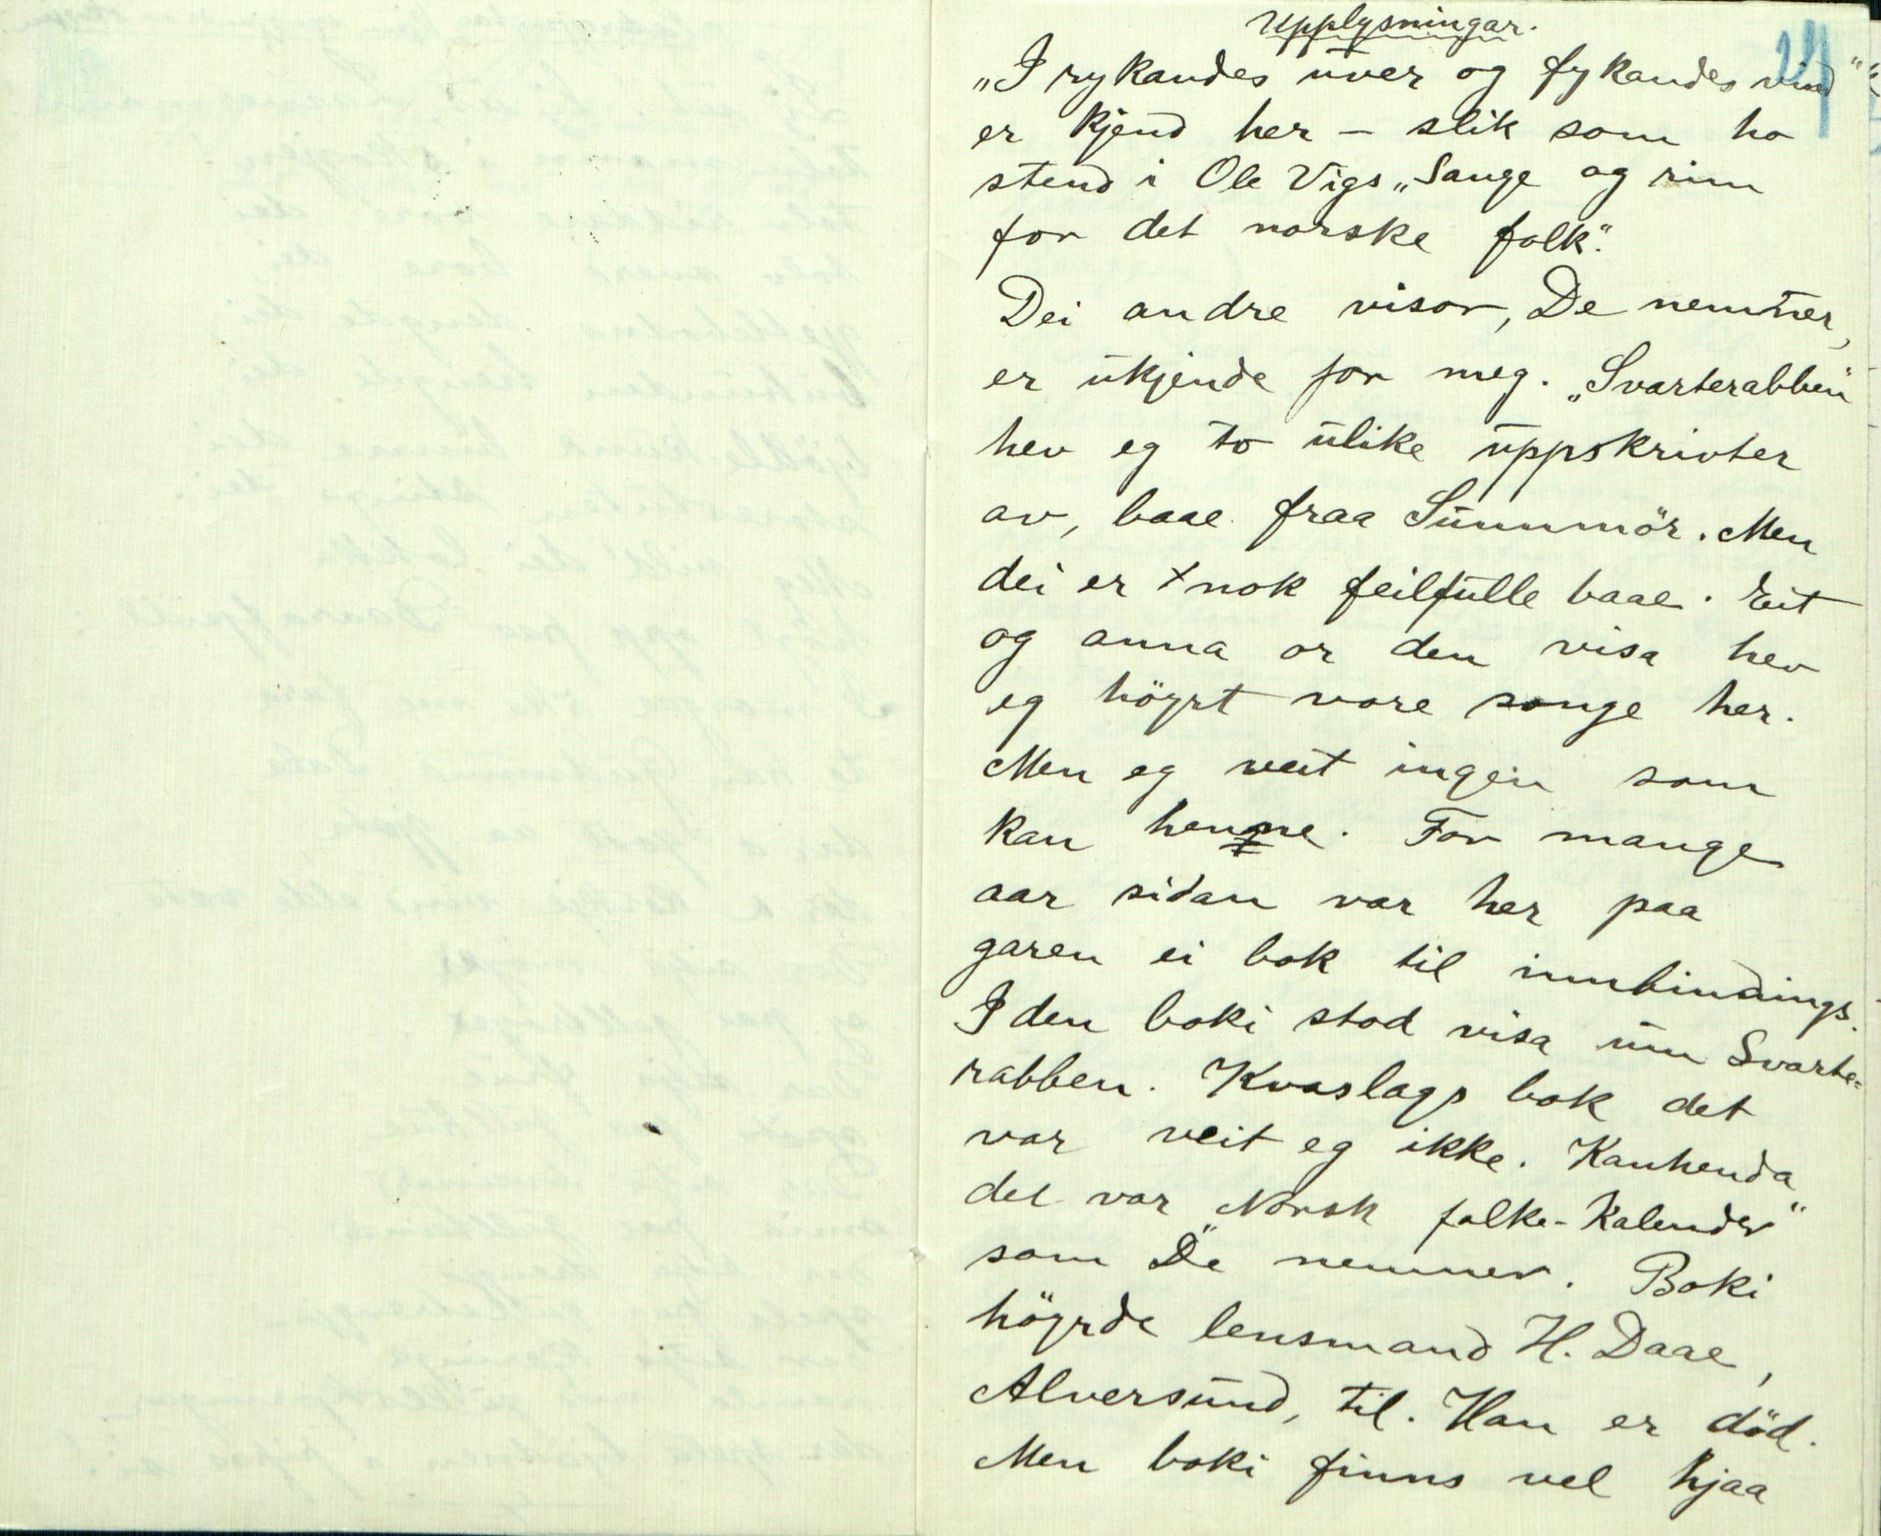 Upplysningar.
24
„I rykandes uver og fykandes vind“
er kjend her – slik som ho
stend i Ole Vigs „Sange og rim
for det norske folk“.
Dei andre visor, De nemner,
er ukjende for meg. „Svarterabben“
hev eg to ulike uppskrivter
av, baae fraa Sunnmör. Men
dei er nok feilfulle baae. Eit
og anna or den visa hev
eg höyrt vore songe her.
Men eg veit ingen som
kan henne. For mange
aar sidan var her paa
garen ei bok til innbindings.
I den boki stod visa um Svarte=
rabben. Kvaslags bok det
var veit eg ikke. Kanhenda
det var Norsk folke-Kalender“
som De nemner. Boki
höyrde lensmand H. Daae,
Alversund, til. Han er död.
Men boki finns vel hjaa